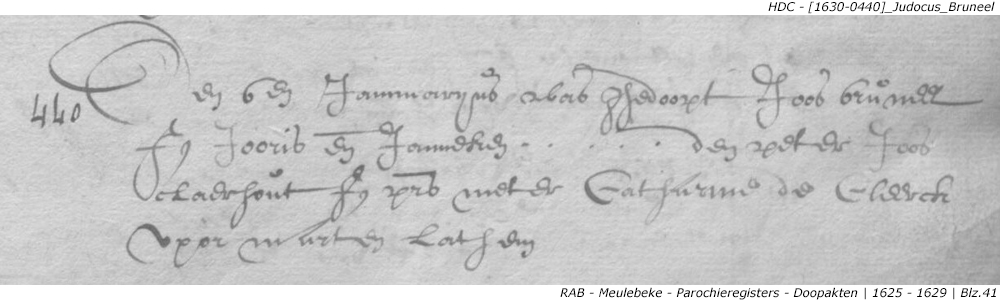 HDC - [1630-0440]_Judocus_Bruneel
440 Den 6en Januuarijus was ghedoopt Joos bruneel
fs Jooris en Janneken . . . . . . den peter Joos
claerhout fs prs meter Catharine de Cleerck
vxor marten Lathem
RAB - Meulebeke - Parochieregisters - Doopakten | 1625 - 1629 | Blz.41